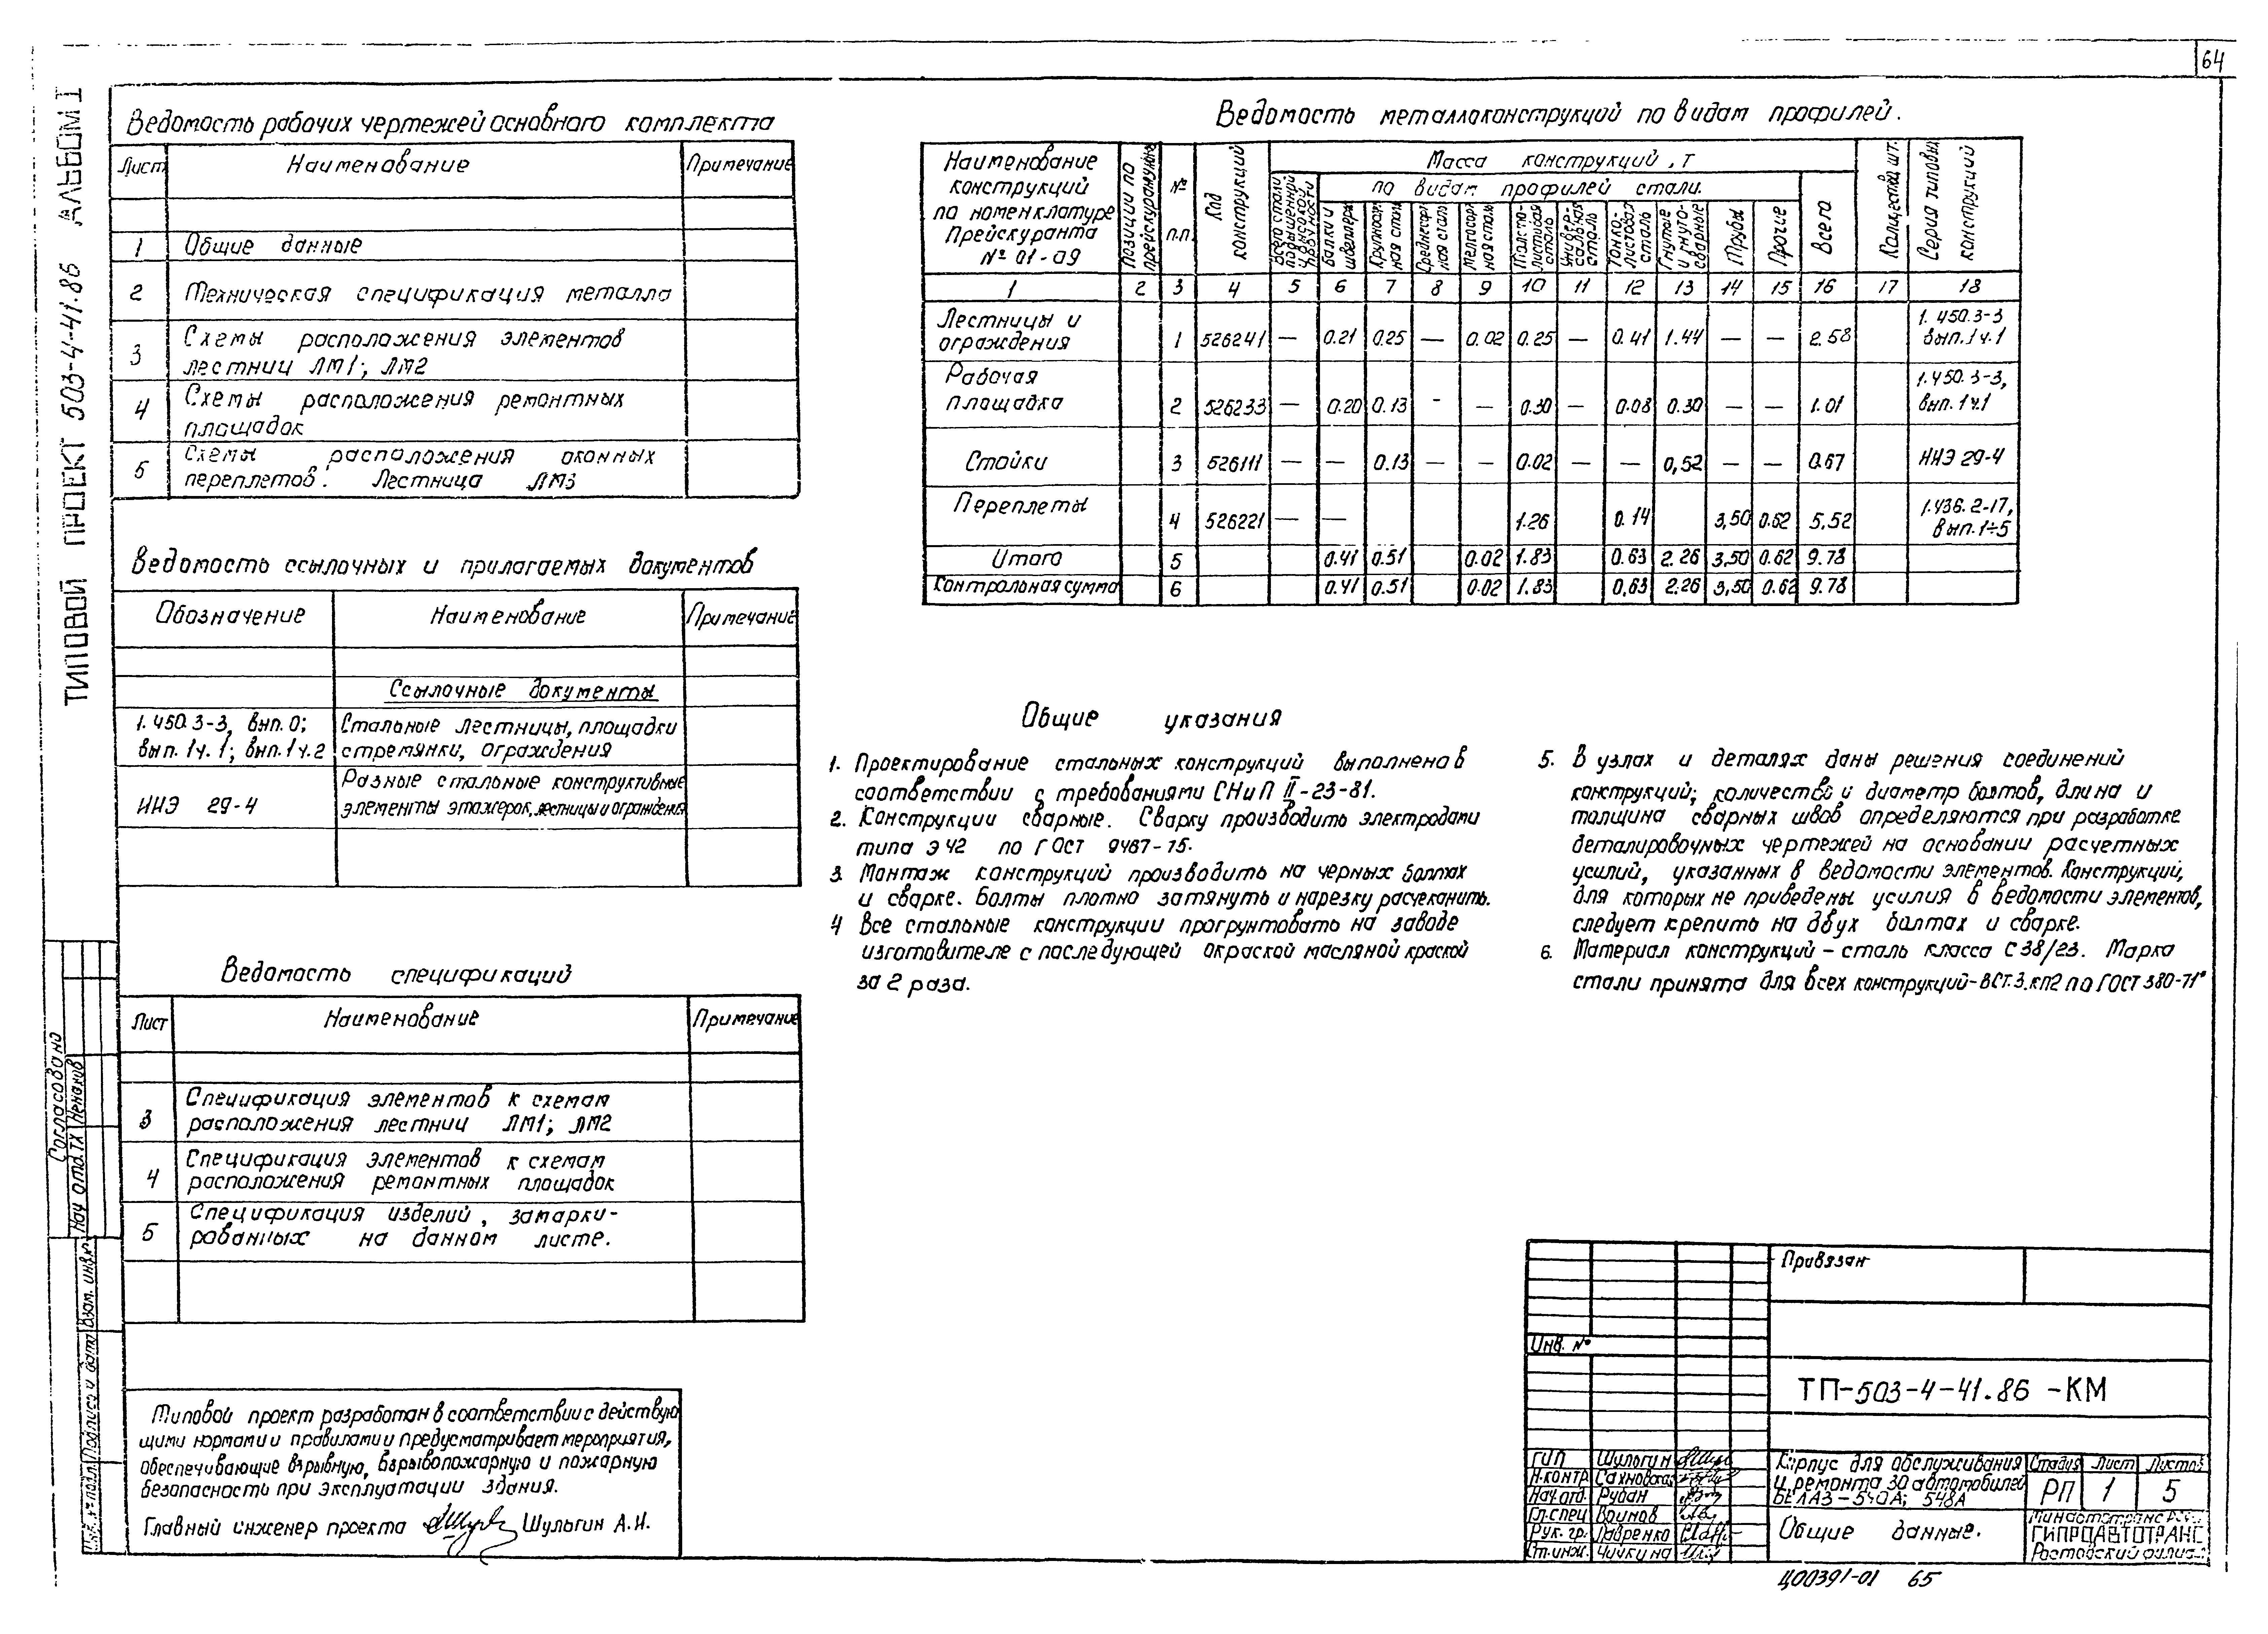 64
ТИПОВОЙ ПРОЕКТ 503-4-41.86 АЛЬБОМ I
Ведомость рабочих чертежей основного комплекта
Лист Наименование Примечание
1 Общие данные
2 Техническая спецификация металла
3 Схемы расположения элементов
лестниц ЛМ1; ЛМ2
4 Схемы расположения ремонтных
площадок
5 Схемы расположения оконных
переплетов. Лестница ЛМ3
Ведомость ссылочных и прилагаемых документов
Обозначение Наименование Примечание
Ссылочные документы
1.450.3-3, вып. 0; Стальные лестницы, площадки
вып. 1ч.1; вып. 1ч.2 стремянки, ограждения
Разные стальные конструктивные
ИИЭ 29-4 элементы этажерок, лестницы и ограждения
Ведомость спецификаций
Лист Наименование Примечание
3 Спецификация элементов к схемам
расположения лестниц ЛМ1; ЛМ2
4 Спецификация элементов к схемам
расположения ремонтных площадок
5 Спецификация изделий, замарки-
рованных на данном листе.
Типовой проект разработан в соответствии с действую
щими нормами и правилами и предусматривает мероприятия,
обеспечивающие взрывную, взрывопожарную и пожарную
безопасность при эксплуатации здания.
Главный инженер проекта Шульгин А.И.
Ведомость металлоконструкций по видам профилей.
Наименование
конструкций
по номенклатуре
Прейскуранта
№ 01-09
Позиции по
прейскуранту
№
п.п.
Код
конструкций
Масса конструкций, т
по видам профилей стали.
Всего стали
повышенной
и высокой
прочности
Балки и
швеллеры
Крупносорт
ная сталь
Среднесорт
ная сталь
Мелкосорт
ная сталь
Толсто-
листовая
сталь
Универ-
сальная
сталь
Тонко-
листовая
сталь
Гнутые
и гнуто-
сварные
Трубы
Прочие
Всего
Количество, шт.
Серия типовых
конструкций
1 2 3 4 5 6 7 8 9 10 11 12 13 14 15 16 17 18
Лестницы и
ограждения 1 526241 — 0.21 0.25 — 0.02 0.25 — 0.41 1.44 — — 2.58 1.450.3-3
вып. 1 ч.1
Рабочая
площадка 2 526233 — 0.20 0.13 - — 0.30 — 0.08 0.30 — — 1.01 1.450.3-3,
вып. 1 ч.1
Стойки 3 526111 — — 0.13 — — 0.02 — — 0,52 — — 0.67 ИИЭ 29-4
Переплеты 4 526221 — — 1.26 0.14 3,50 0.62 5.52 1.436.2-17,
вып. 1÷5
Итого 5 0.41 0.51 0.02 1.83 0.63 2.26 3,50 0.62 9.78
Контрольная сумма 6 0.41 0.51 0.02 1.83 0,63 2.26 3,50 0.62 9.78
Общие указания
1. Проектирование стальных конструкций выполнена в
соответствии с требованиями СНиП II-23-81.
2. Конструкции сварные. Сварку производить электродами
типа Э42 по ГОСТ 9467-75.
3. Монтаж конструкций производить на черных болтах
и сварке. Болты плотно затянуть и нарезку расчеканить.
4 Все стальные конструкции прогрунтовать на заводе
изготовителе с последующей окраской масляной краской
за 2 раза.
5. В узлах и деталях даны решения соединений
конструкций; количество и диаметр болтов, длина и
толщина сварных швов определяются при разработке
деталировочных чертежей на основании расчетных
усилий, указанных в ведомости элементов. Конструкций,
для которых не приведены усилия в ведомости элементов,
следует крепить на двух болтах и сварке.
6. Материал конструкций – сталь класса С 38/23. Марка
стали принята для всех конструкций-ВСТ.3.кп2 по ГОСТ 380-71*
Согласовано
Нач отд. ТХ Ненахов
Взам. инв.
Подпись и дата
Инв. № подл.
Привязан
Инв. №
ТП-503-4-41.86 -КМ
ГИП Шульгин
Н.контр Сахновская
Нач.отд. Рудан
Гл.спец Воинов
Рук. гр. Лавренко
Ст.инж. Чичкина
Корпус для обслуживания
и ремонта 30 автомобилей
БЕЛАЗ-540А; 548А
Стадия Лист Листов
РП 1 5
Общие данные.
ГИПРОАВТОТРАНС
Ростовский филиал
Ц00391-01 65